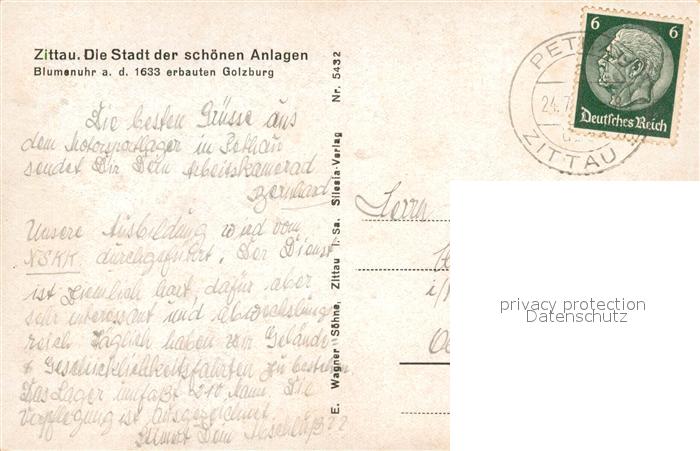 Zittau. Die Stadt der schönen Anlagen
Blumenuhr a. d. 1633 erbauten Golzburg
Die besten Grüsse aus
dem Motorsportlager in Pethau
sendet Dir Dein Arbeitskamerad
Bernhard
Unsere Ausbildung wird vom
NSKK. durchgeführt. Der Dienst
ist ziemlich hart, dafür aber
sehr interessant und abwechslungs
reich. Täglich haben wir Gelände-
+ Geschicklichkeitsfahrten zu bestehen.
Das Lager umfaßt 210 Mann. Die
Verpflegung ist ausgezeichnet.
Dein
E. Wagner Söhne, Zittau i. Sa. Silesia-Verlag Nr. 5432
6 6
Deutsches Reich
PET
24.7
ZITTAU
Herrn
i/
privacy protection
Datenschutz